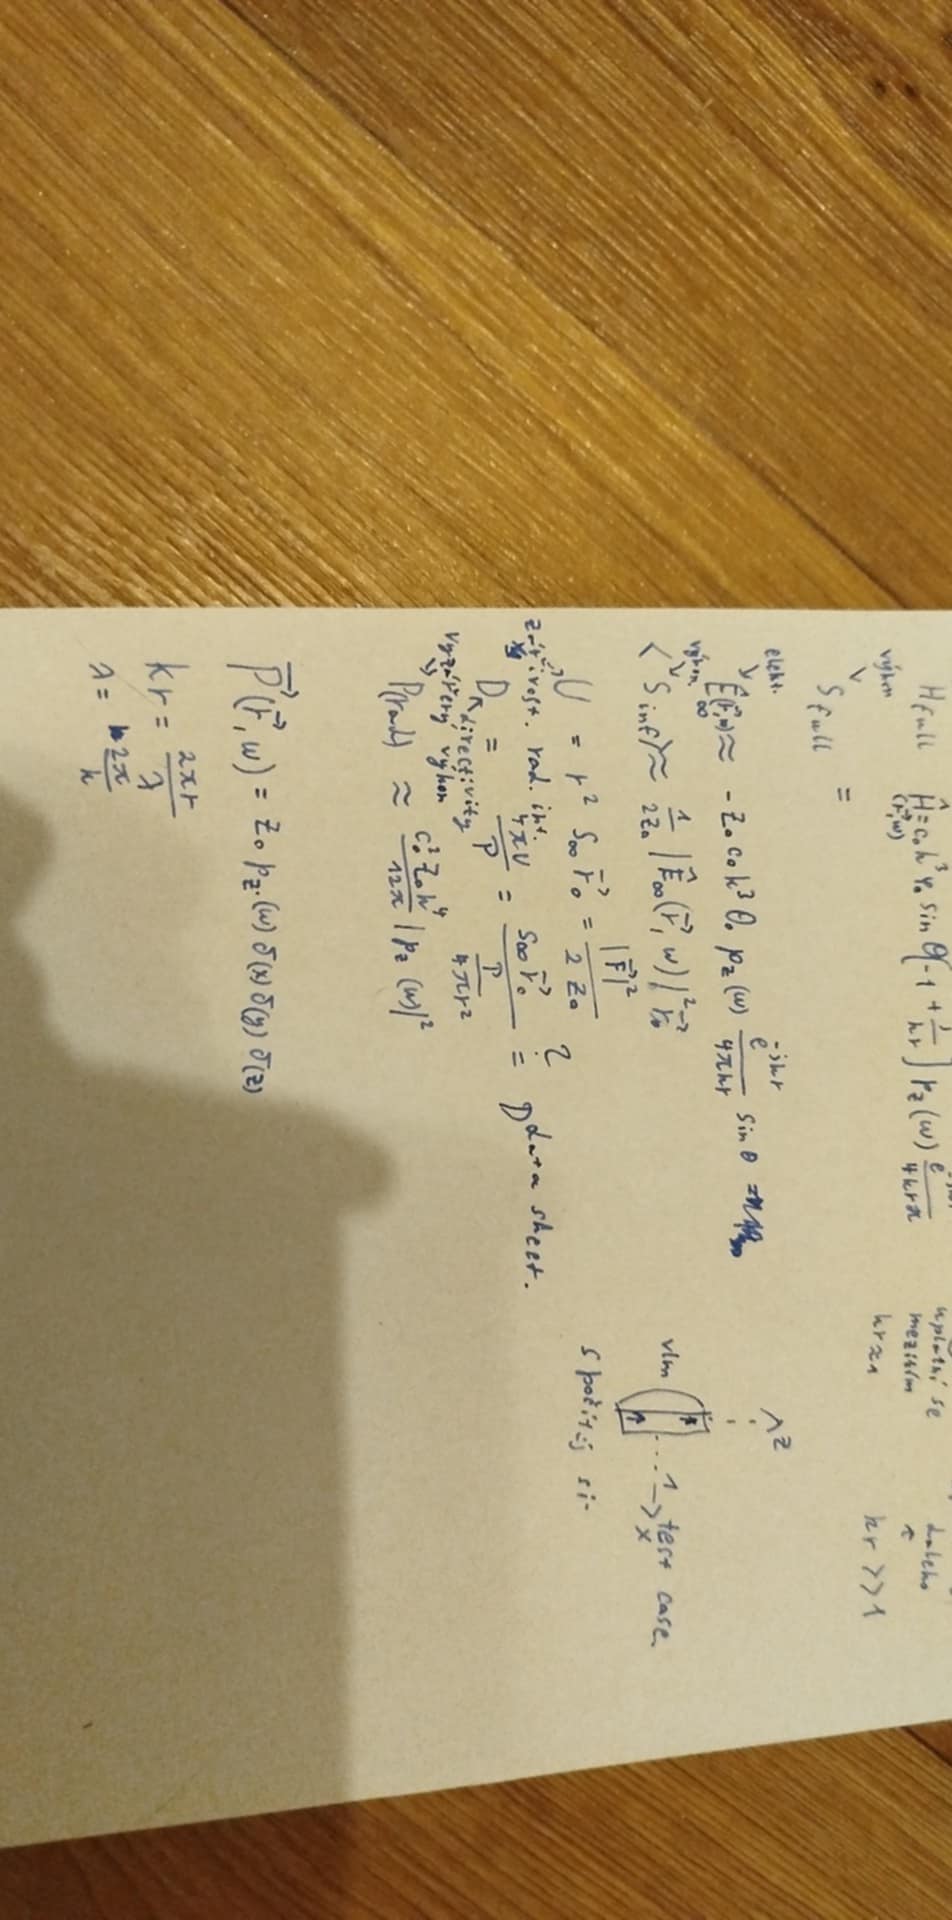 H full Ĥ(r⃗,w) = c₀ k³ φ₀ sin θ[-1 + j/kr] p_z(w) e^-jkr/4krπ
uplatní se
mezitím
kr≈1
daleko
kr >>1
výkon
S full =
elekt.
Ê∞(r⃗,w) ≈ - Z₀ c₀ k³ θ₀ p_z(w) e^-jkr/4πkr sin θ
výkon
⟨S inf⟩ ≈ 1/2Z₀ |Ê∞(r⃗, w)|² r⃗₀
U = r² S∞ r⃗₀ = |F⃗|²/2 Z₀
rad. int.
D = 4πU/P = S∞ r⃗₀ / (P/4πr²) ?= D data sheet.
directivity
vyzářený výkon
P(rad) ≈ c₀² Z₀ k⁴/12π |p_z (w)|²
z
vlm
1 test case
x
spočítej si
P⃗(r⃗, w) = z₀ p_z(w) δ(x) δ(y) δ(z)
kr = 2πr/λ
λ = 2π/k